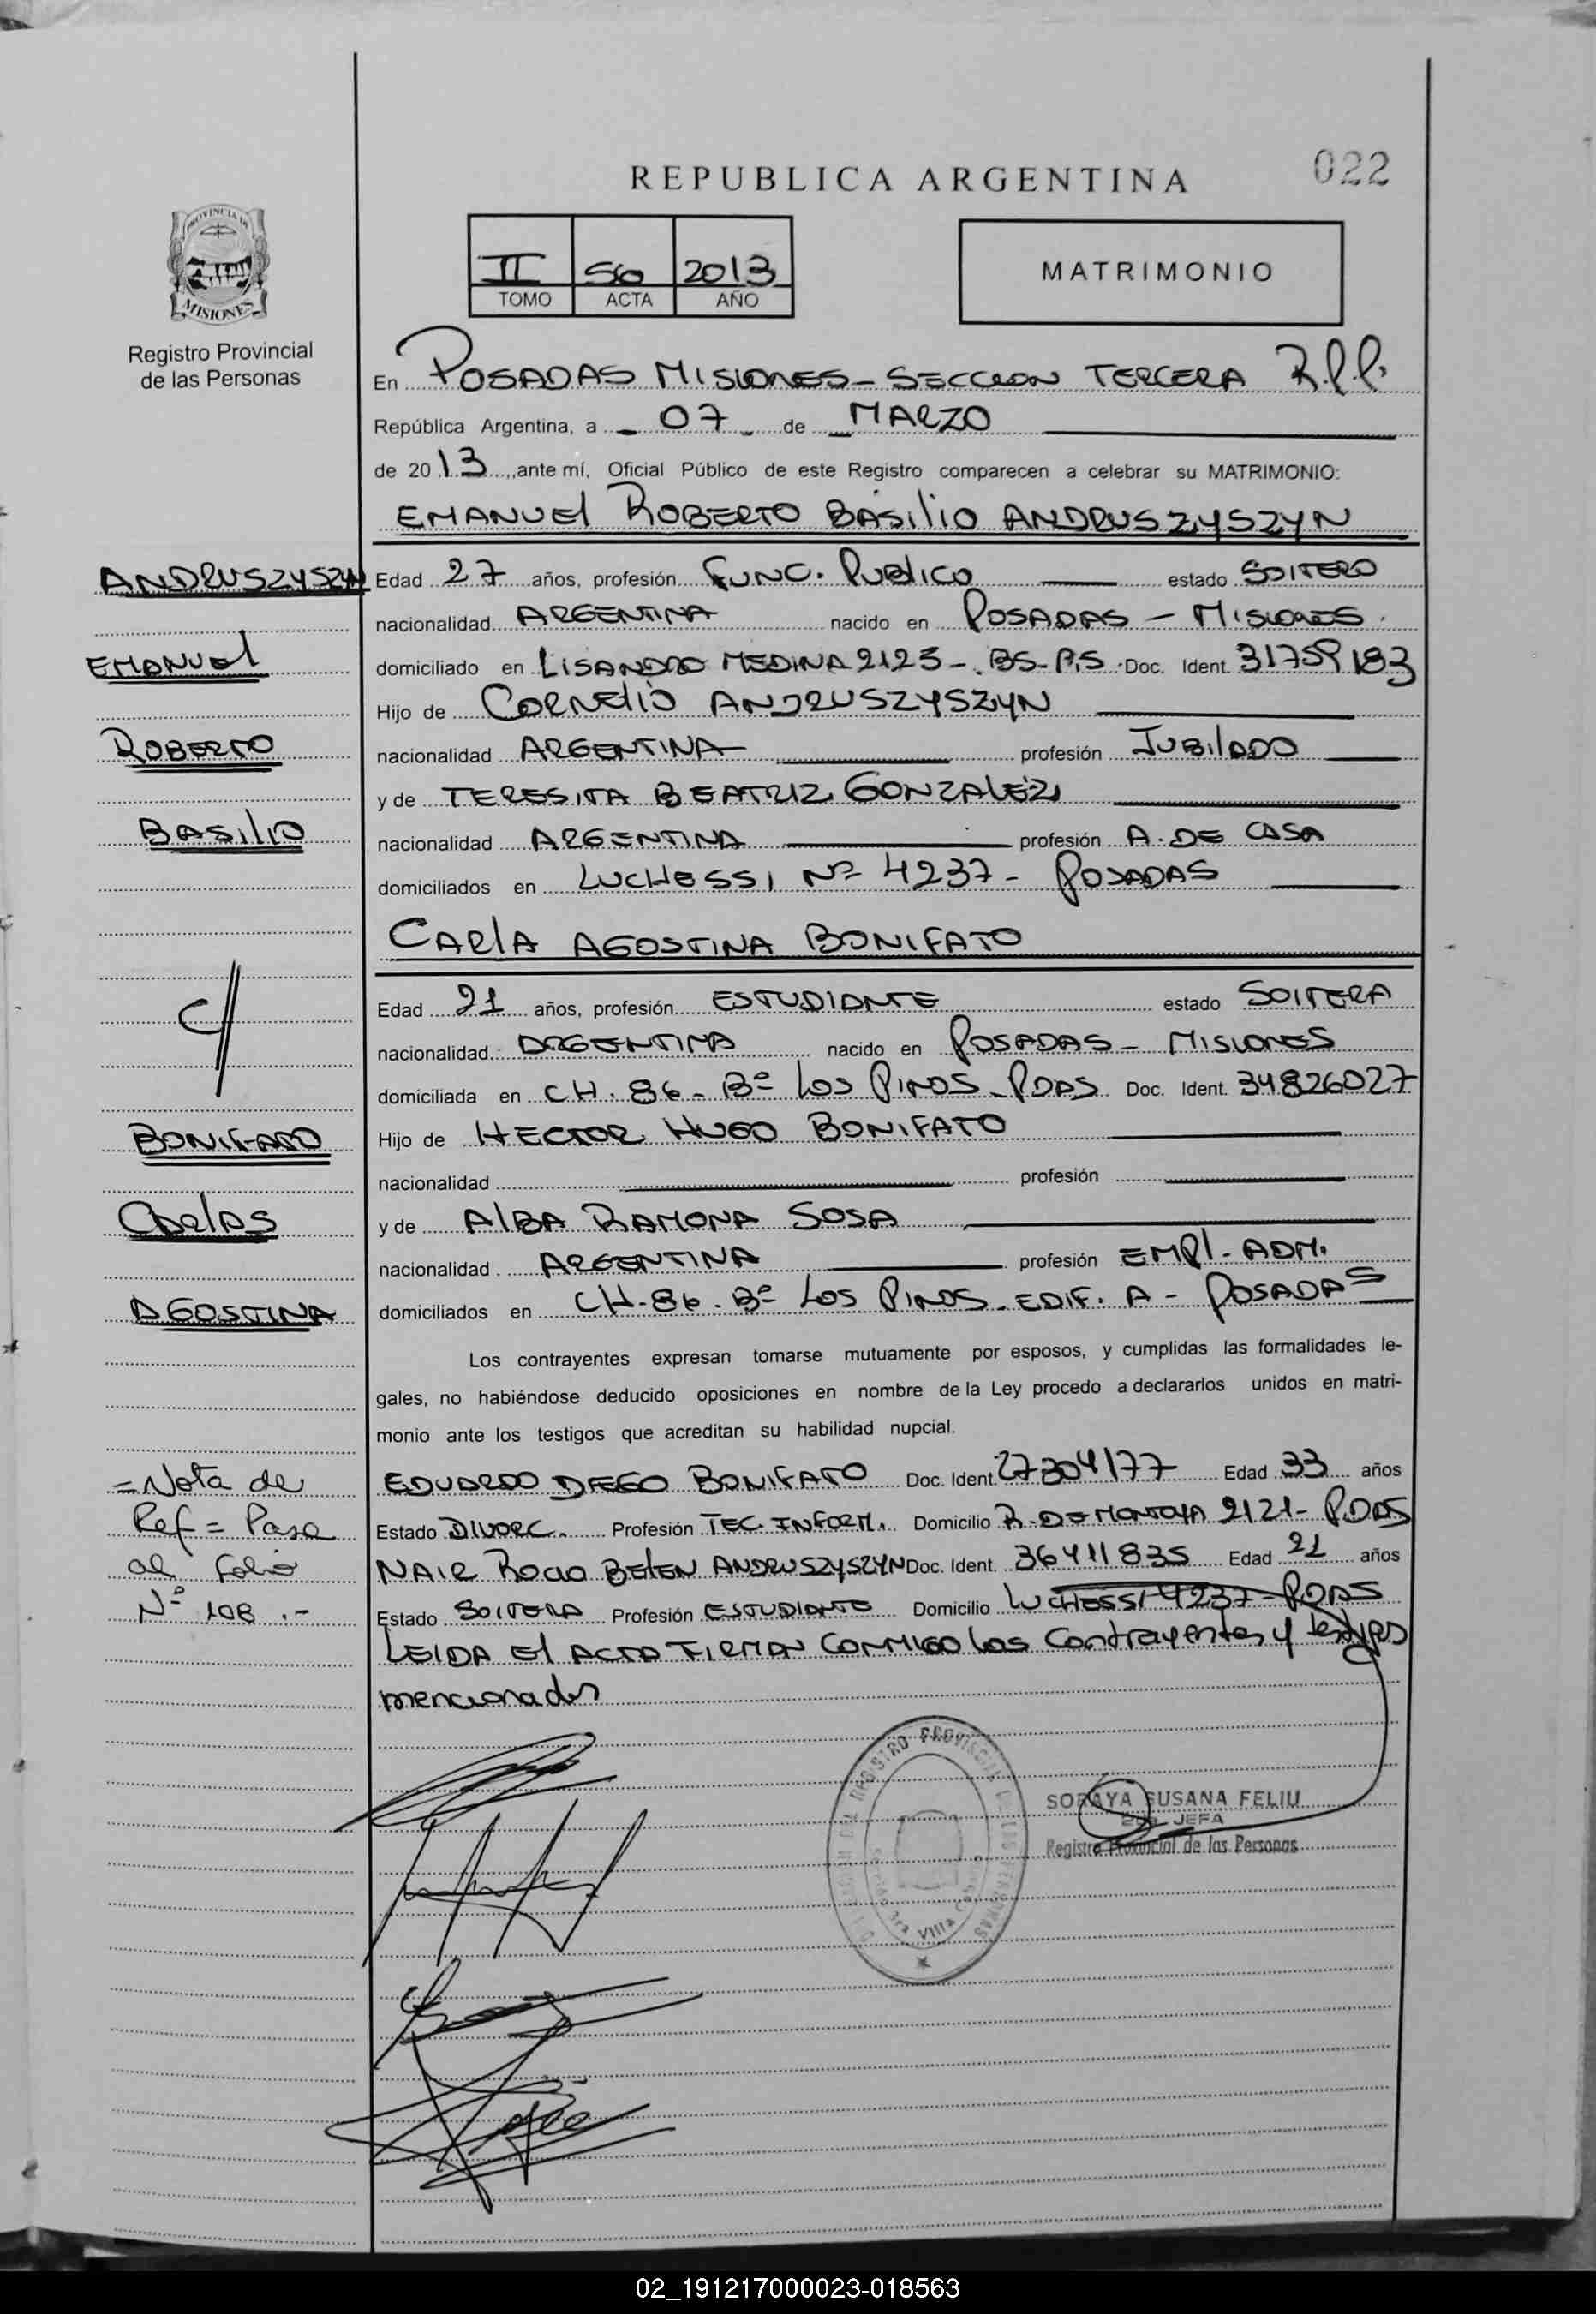 022
REPUBLICA ARGENTINA
PROVINCIA DE
MISIONES
Registro Provincial
de las Personas
II 56 2013
TOMO ACTA AÑO
MATRIMONIO
En POSADAS MISIONES - SECCION TERCERA R.P.P.
República Argentina, a - 07 - de MARZO
de 2013, ante mí, Oficial Público de este Registro comparecen a celebrar su MATRIMONIO:
EMANUEL ROBERTO BASILIO ANDRUSZYSZYN
ANDRUSZYSZYN
Edad 27 años, profesión FUNC. PUBLICO estado SOLTERO
nacionalidad ARGENTINA nacido en POSADAS - MISIONES.
EMANUEL
domiciliado en LISANDRO MEDINA 2123 - BS-AS Doc. Ident. 31759183
Hijo de CORNELIO ANDRUSZYSZYN
ROBERTO
nacionalidad ARGENTINA profesión JUBILADO
y de TERESITA BEATRIZ GONZALEZ
BASILIO
nacionalidad ARGENTINA profesión A. DE CASA
domiciliados en LUCHESSI Nº 4237 - POSADAS
CARLA AGOSTINA BONIFATO
C/
Edad 21 años, profesión ESTUDIANTE estado SOLTERA
nacionalidad ARGENTINA nacido en POSADAS - MISIONES
domiciliada en CH. 86 - Bº LOS PINOS - PDAS Doc. Ident. 34826027
BONIFATO
Hijo de HECTOR HUGO BONIFATO
nacionalidad profesión
CARLAS
y de ALBA RAMONA SOSA
nacionalidad ARGENTINA profesión EMPL. ADM.
AGOSTINA
domiciliados en CH-86. Bº LOS PINOS - EDIF. A - POSADAS
Los contrayentes expresan tomarse mutuamente por esposos, y cumplidas las formalidades le-
gales, no habiéndose deducido oposiciones en nombre de la Ley procedo a declararlos unidos en matri-
monio ante los testigos que acreditan su habilidad nupcial.
= Nota de
Ref = Pasa
al folio
Nº 108 .-
EDUARDO DIEGO BONIFATO Doc. Ident. 27304177 Edad 33 años
Estado DIVORC. Profesión TEC. INFORM. Domicilio R. DE MONTOYA 2121 - PDAS
NAIR ROCIO BELEN ANDRUSZYSZYN Doc. Ident. 36411835 Edad 21 años
Estado SOLTERA Profesión ESTUDIANTE Domicilio LUCHESSI 4237 - PDAS
LEIDA El ACTA FIRMAN CONMIGO los Contrayentes y testigos
mencionados
REGISTRO PROVINCIAL DE LAS PERSONAS
SORAYA SUSANA FELIU
JEFA
Registro Provincial de las Personas
02_191217000023-018563